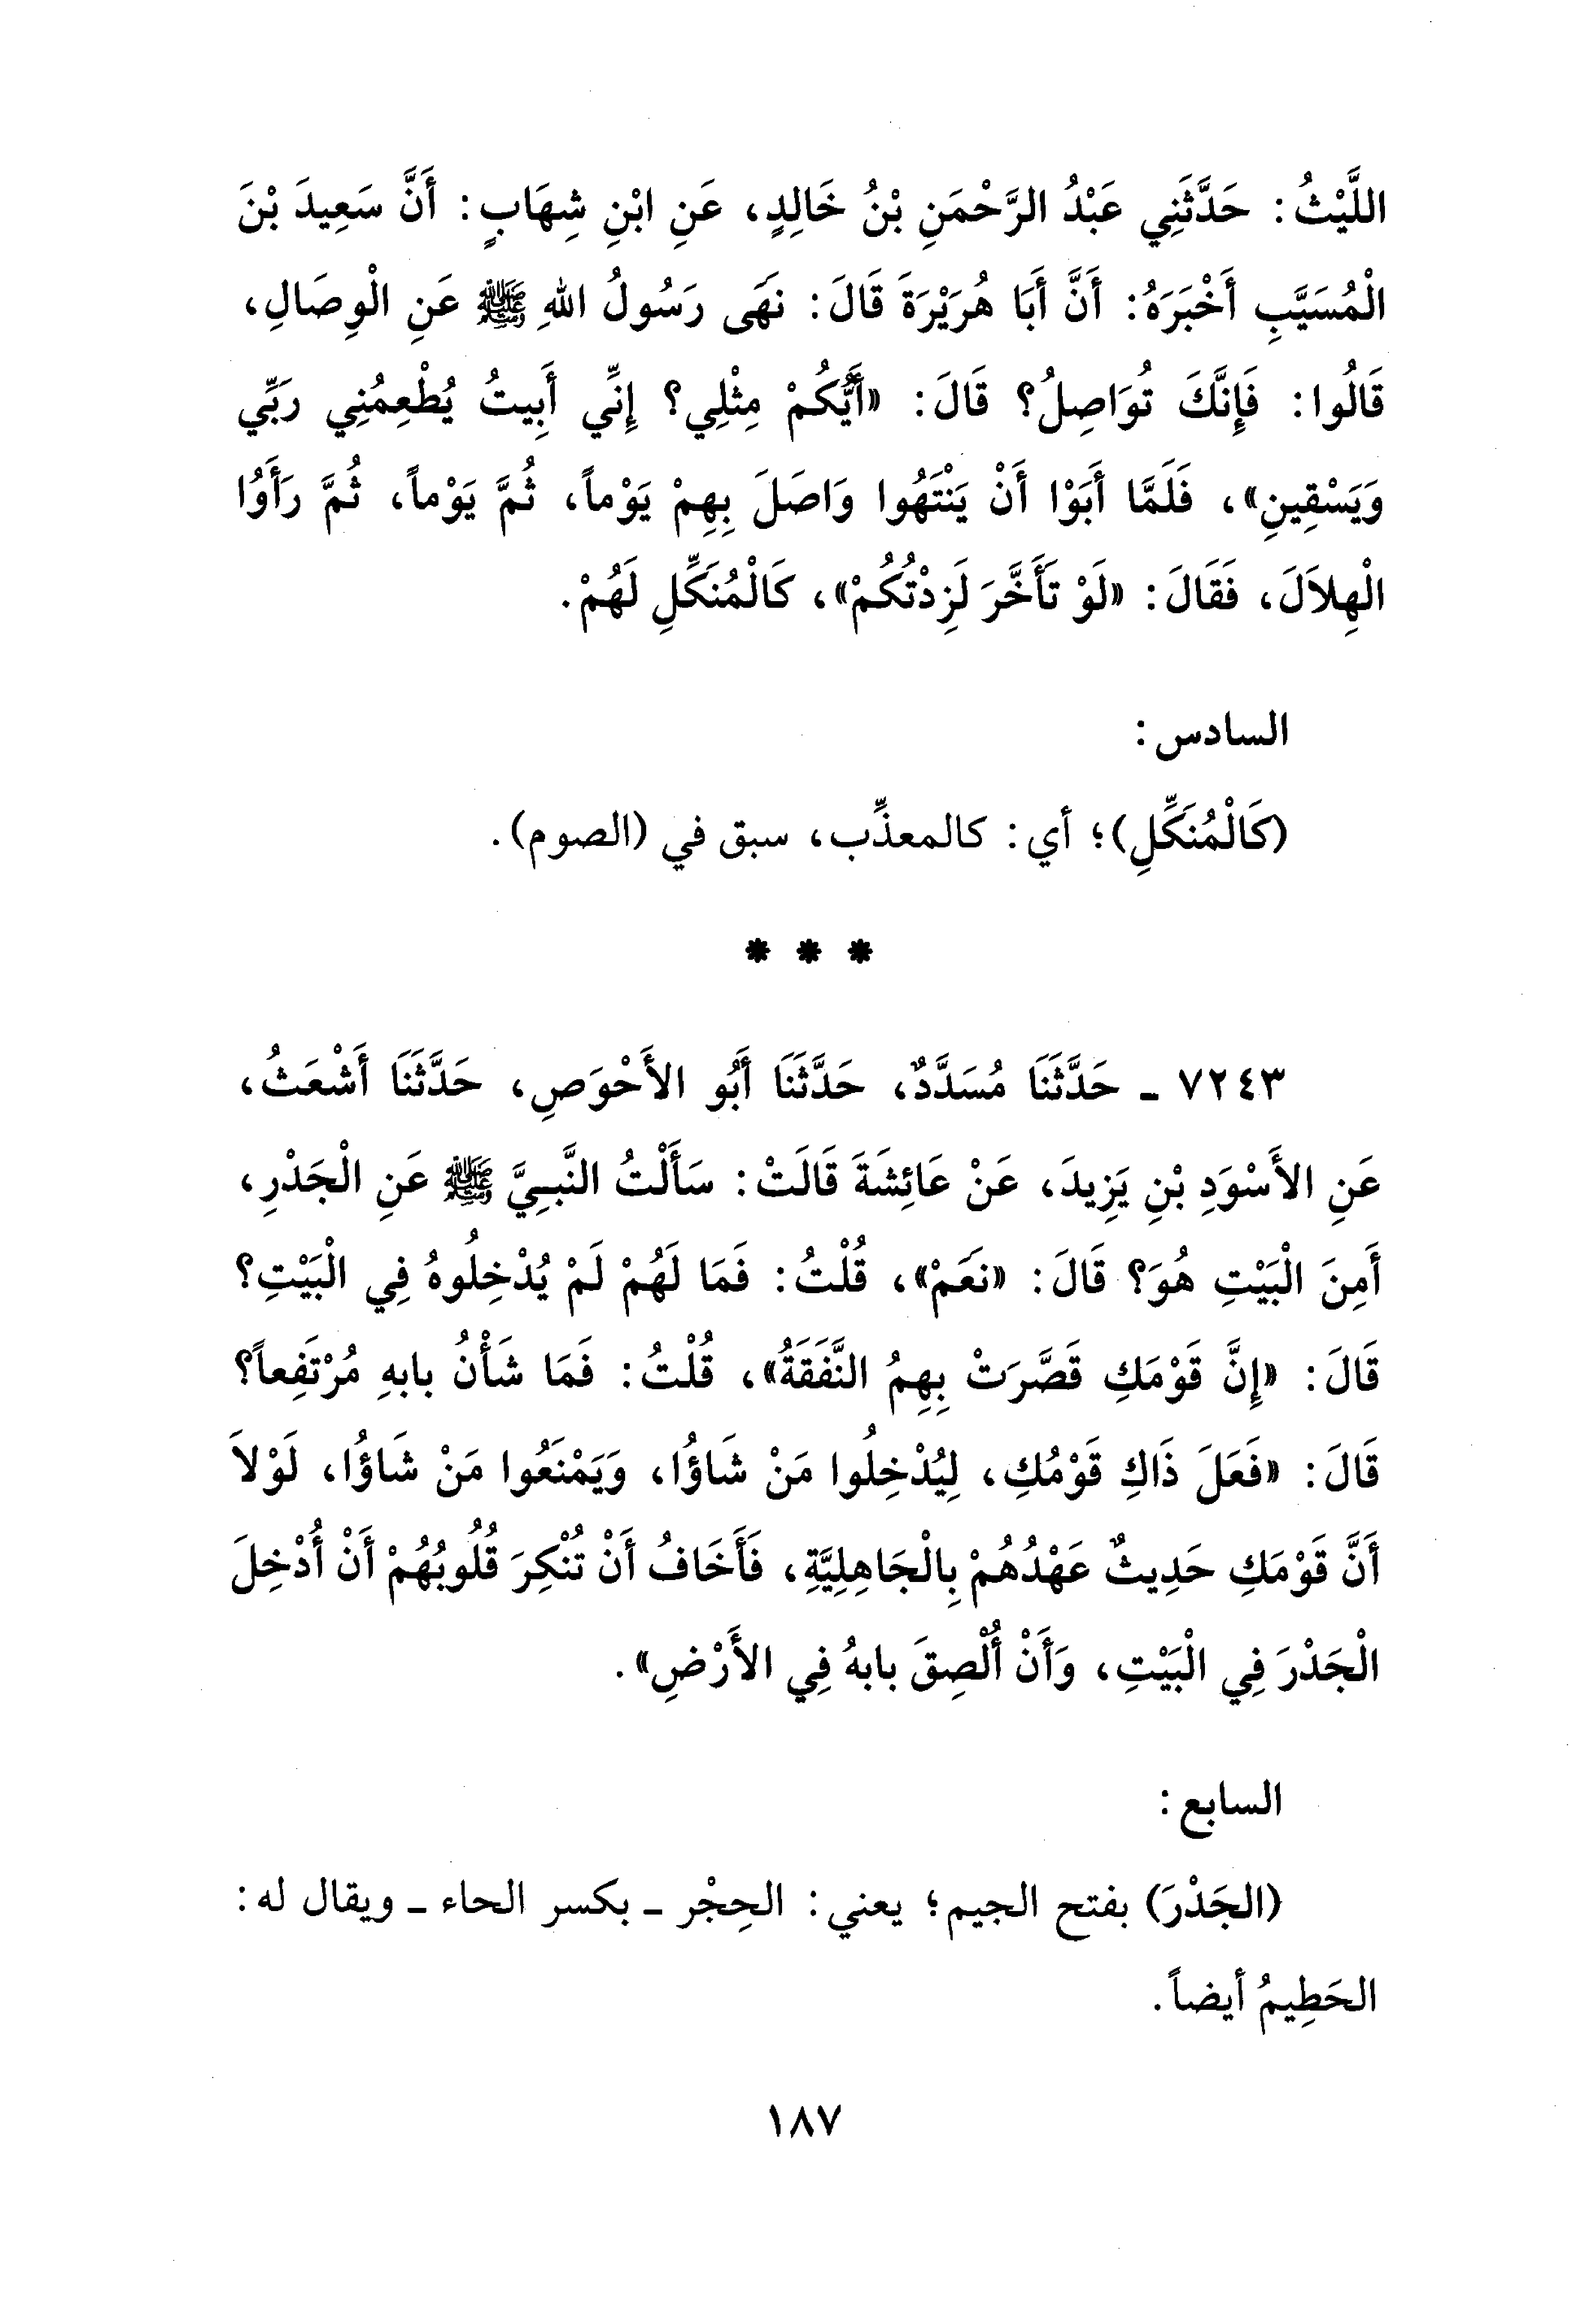 اللَّيْثُ: حَدَّثَنِي عَبْدُ الرَّحْمَنِ بْنُ خَالِدٍ، عَنِ ابْنِ شِهَابٍ: أَنَّ سَعِيدَ بْنَ
الْمُسَيَّبِ أَخْبَرَهُ: أَنَّ أَبَا هُرَيْرَةَ قَالَ: نَهَى رَسُولُ اللهِ ﷺ عَنِ الْوِصَالِ،
قَالُوا: فَإِنَّكَ تُوَاصِلُ؟ قَالَ: «أَيُّكُمْ مِثْلِي؟ إِنِّي أَبِيتُ يُطْعِمُنِي رَبِّي
وَيَسْقِينِ»، فَلَمَّا أَبَوْا أَنْ يَنْتَهُوا وَاصَلَ بِهِمْ يَوْماً، ثُمَّ يَوْماً، ثُمَّ رَأَوُا
الْهِلاَلَ، فَقَالَ: «لَوْ تَأَخَّرَ لَزِدْتُكُمْ»، كَالْمُنَكِّلِ لَهُمْ.
السادس:
(كَالْمُنَكِّلِ)؛ أي: كالمعذِّب، سبق في (الصوم).
* * *
٧٢٤٣ - حَدَّثَنَا مُسَدَّدٌ، حَدَّثَنَا أَبُو الأَحْوَصِ، حَدَّثَنَا أَشْعَثُ،
عَنِ الأَسْوَدِ بْنِ يَزِيدَ، عَنْ عَائِشَةَ قَالَتْ: سَأَلْتُ النَّبِيَّ ﷺ عَنِ الْجَدْرِ،
أَمِنَ الْبَيْتِ هُوَ؟ قَالَ: «نَعَمْ»، قُلْتُ: فَمَا لَهُمْ لَمْ يُدْخِلُوهُ فِي الْبَيْتِ؟
قَالَ: «إِنَّ قَوْمَكِ قَصَّرَتْ بِهِمُ النَّفَقَةُ»، قُلْتُ: فَمَا شَأْنُ بابهِ مُرْتَفِعاً؟
قَالَ: «فَعَلَ ذَاكِ قَوْمُكِ، لِيُدْخِلُوا مَنْ شَاؤُا، وَيَمْنَعُوا مَنْ شَاؤُا، لَوْلاَ
أَنَّ قَوْمَكِ حَدِيثٌ عَهْدُهُمْ بِالْجَاهِلِيَّةِ، فَأَخَافُ أَنْ تُنْكِرَ قُلُوبُهُمْ أَنْ أُدْخِلَ
الْجَدْرَ فِي الْبَيْتِ، وَأَنْ أُلْصِقَ بابهُ فِي الأَرْضِ».
السابع:
(الجَدْرَ) بفتح الجيم؛ يعني: الحِجْر - بكسر الحاء - ويقال له:
الحَطِيمُ أيضاً.
١٨٧